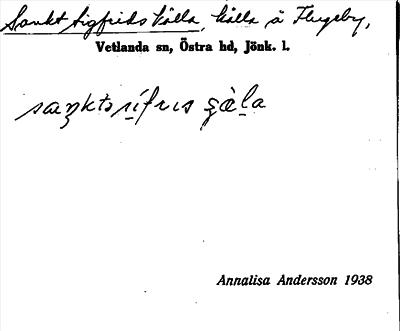 Sankt Sigfrids källa, källa å Flugeby,
Vetlanda sn, Östra hd, Jönk. l.
Annalisa Andersson 1938